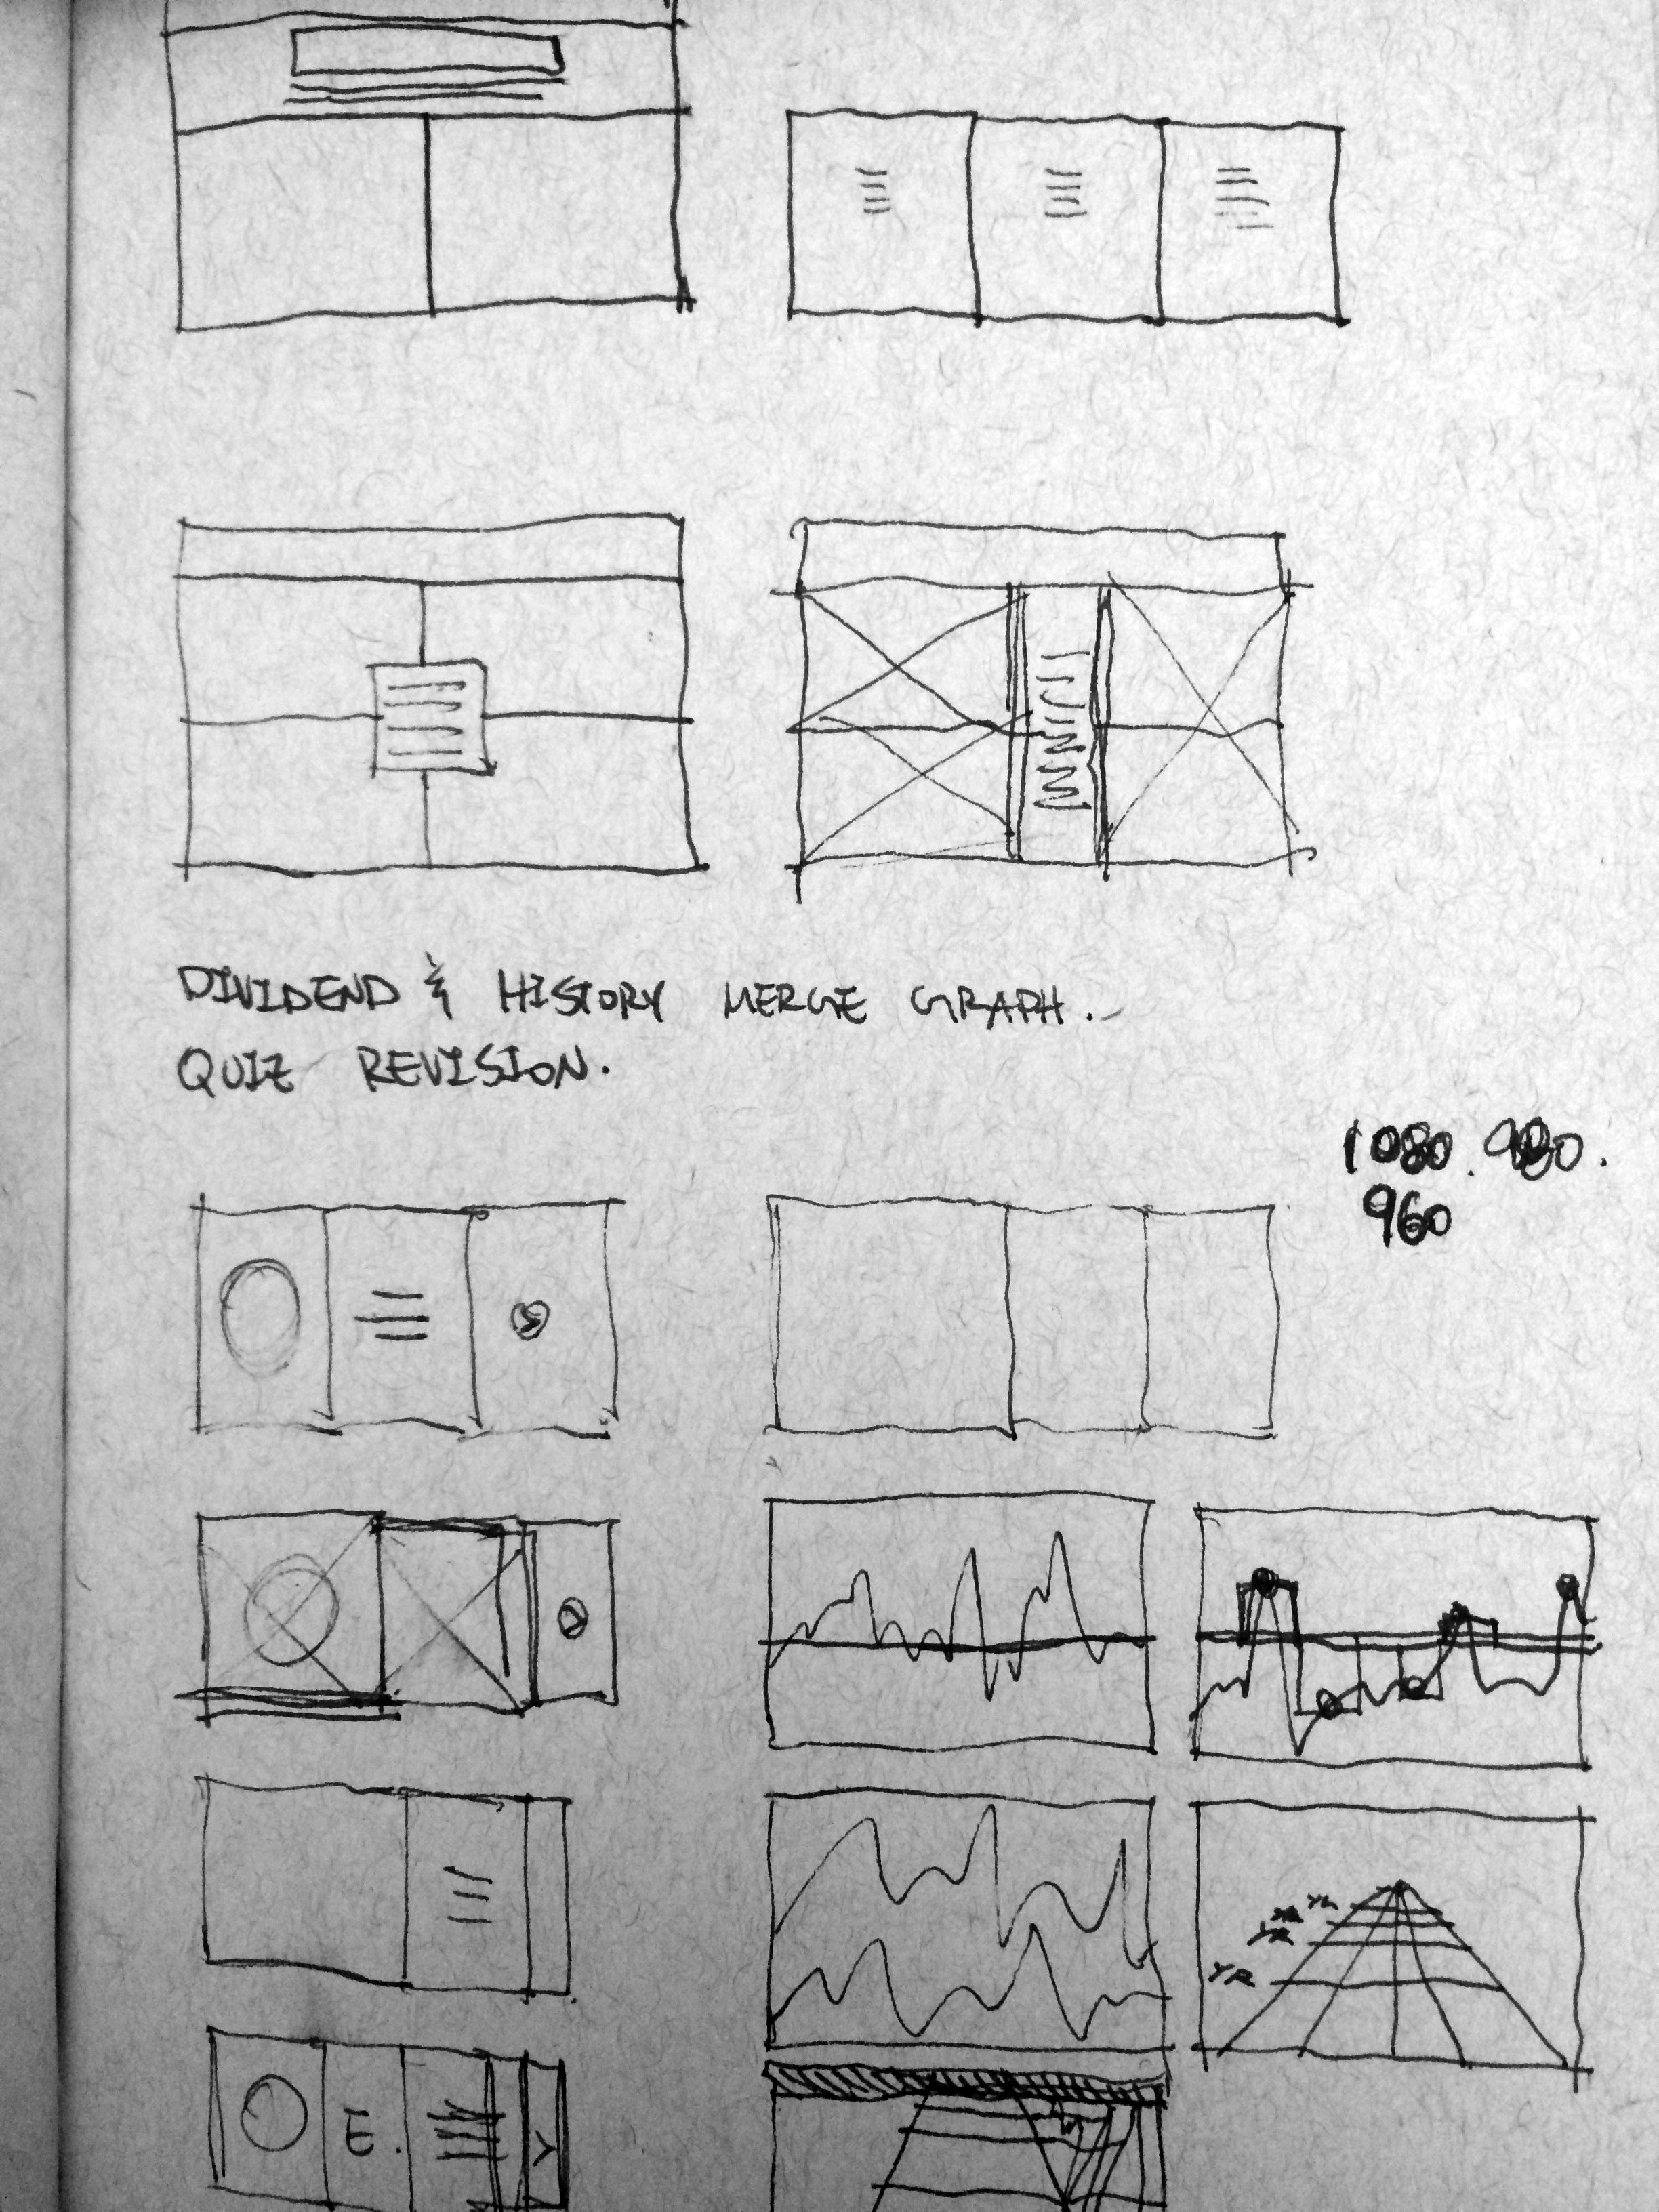 DIVIDEND & HISTORY MERGE GRAPH.
QUIZ REVISION.
1080. 980.
960
YR
YR
YR
YR
E.